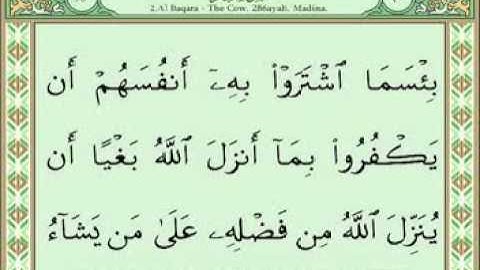 2.Al Baqara - The Cow, 286ayah, Madina.
بِئْسَمَا ٱشْتَرَوْا۟ بِهِۦٓ أَنفُسَهُمْ أَن
يَكْفُرُوا۟ بِمَآ أَنزَلَ ٱللَّهُ بَغْيًا أَن
يُنَزِّلَ ٱللَّهُ مِن فَضْلِهِۦ عَلَىٰ مَن يَشَآءُ